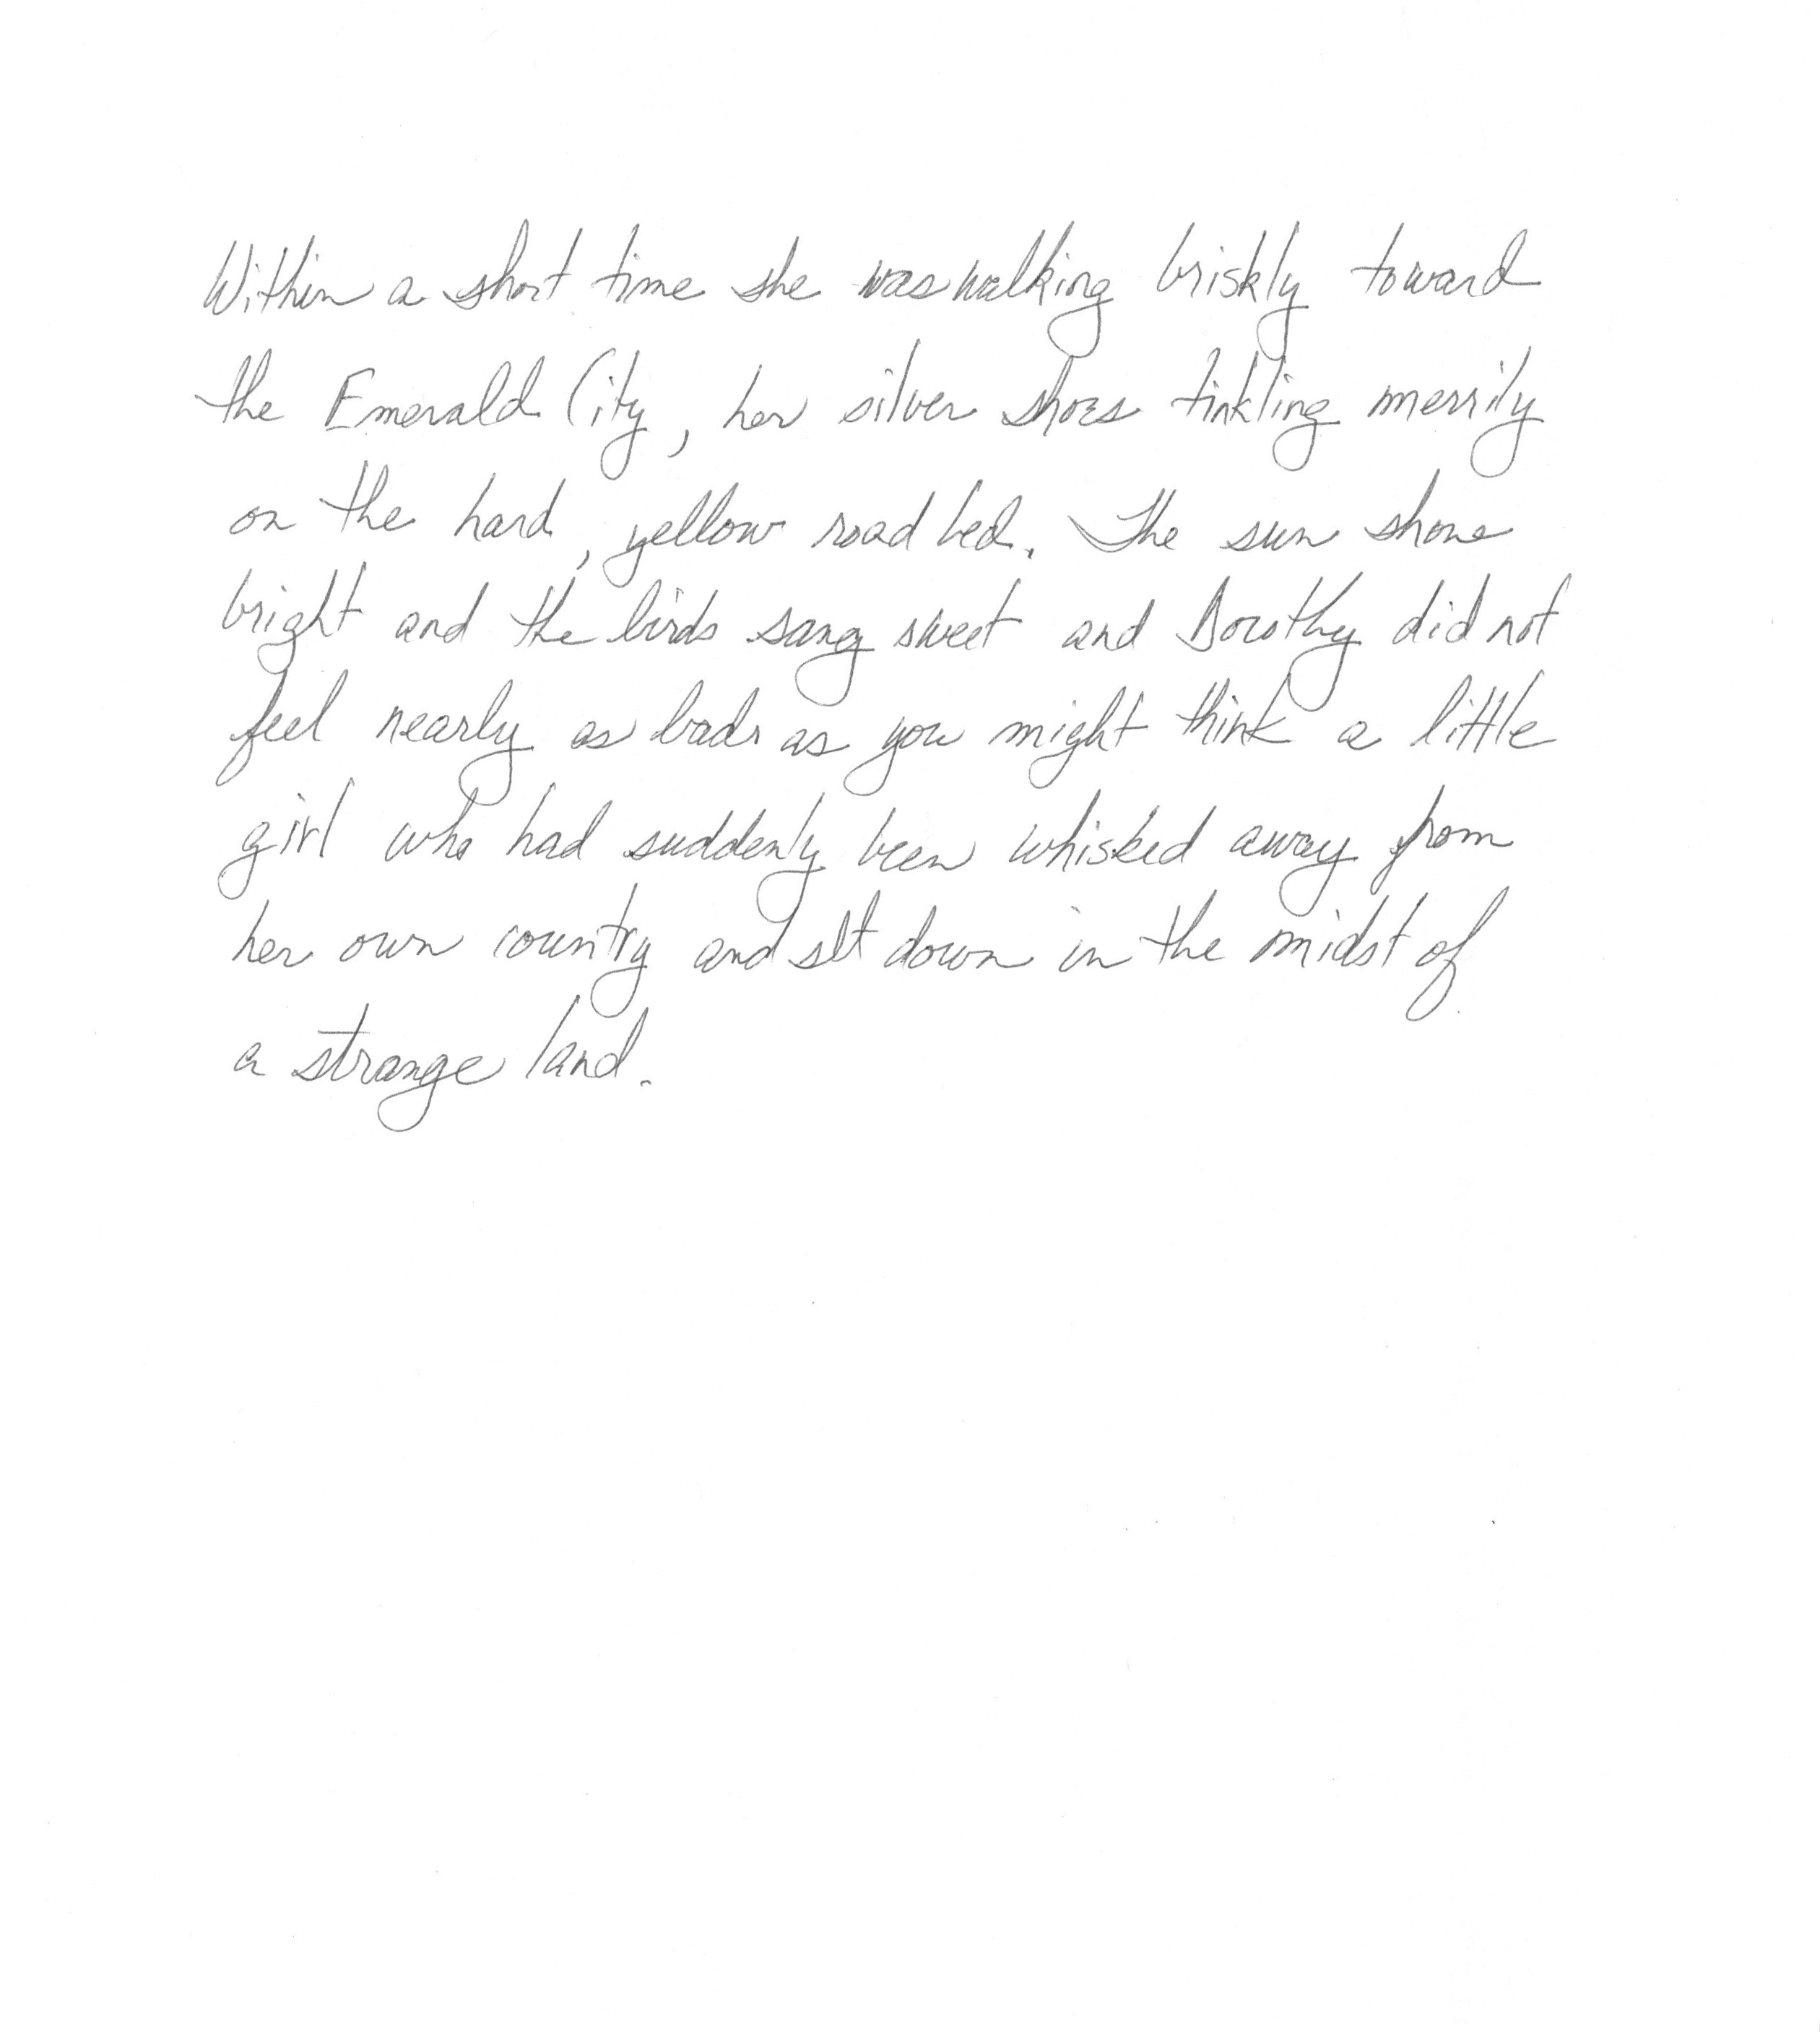 Within a short time she was walking briskly toward
the Emerald City, her silver shoes tinkling merrily
on the hard, yellow road bed. The sun shone
bright and the birds sang sweet and Dorothy did not
feel nearly as bad as you might think a little
girl who had suddenly been whisked away from
her own country and set down in the midst of
a strange land.